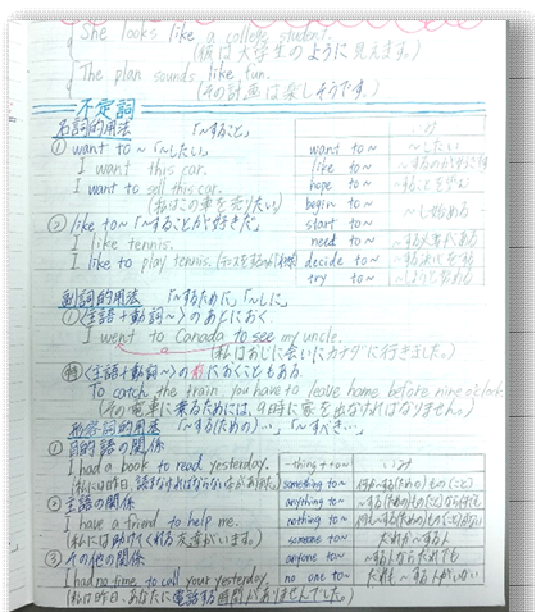 She looks like a college student.
(彼は大学生のように見えます。)
The plan sounds like fun.
(その計画は楽しそうです。)
不定詞
名詞的用法 「~すること」
① want to ~ 「~したい」
I want this car.
I want to sell this car.
(私はこの車を売りたい)
② like to~ 「~することが好きだ」
I like tennis.
I like to play tennis.
いみ
want to ~ ~したい
like to ~ ~するのが好きです
hope to ~ ~することを望む
begin to ~
start to ~ ~し始める
need to ~ ~する必要がある
decide to ~ ~する決心をする
try to ~ ~しようと努める
副詞的用法 「~するために」「~しに」
①〈主語+動詞~〉のあとにおく
I went to Canada to see my uncle.
(私はおじに会いにカナダに行きました。)
〈主語+動詞~〉の前におくこともある
To catch the train you have to leave home before nine o'clock.
(その電車に乗るためには、9時に家を出なければなりません。)
形容詞的用法 「~する(ための)…」「~すべき…」
① 目的語の関係
I had a book to read yesterday.
(私には昨日、読まなければならない本がありました。)
② 主語の関係
I have a friend to help me.
(私には助けてくれる友達がいます。)
③ その他の関係
I had no time to call your yesterday.
(私は昨日、あなたに電話する時間がありませんでした。)
-thing + to~ いみ
something to~ 何か~する(ための)もの(こと)
anything to~ ~する(ための)もの(こと)なら何でも
nothing to~ 何も~する(ための)もの(こと)がない
someone to~ だれか~する人
anyone to~ ~する人ならだれでも
no one to~ だれも~する人がいない